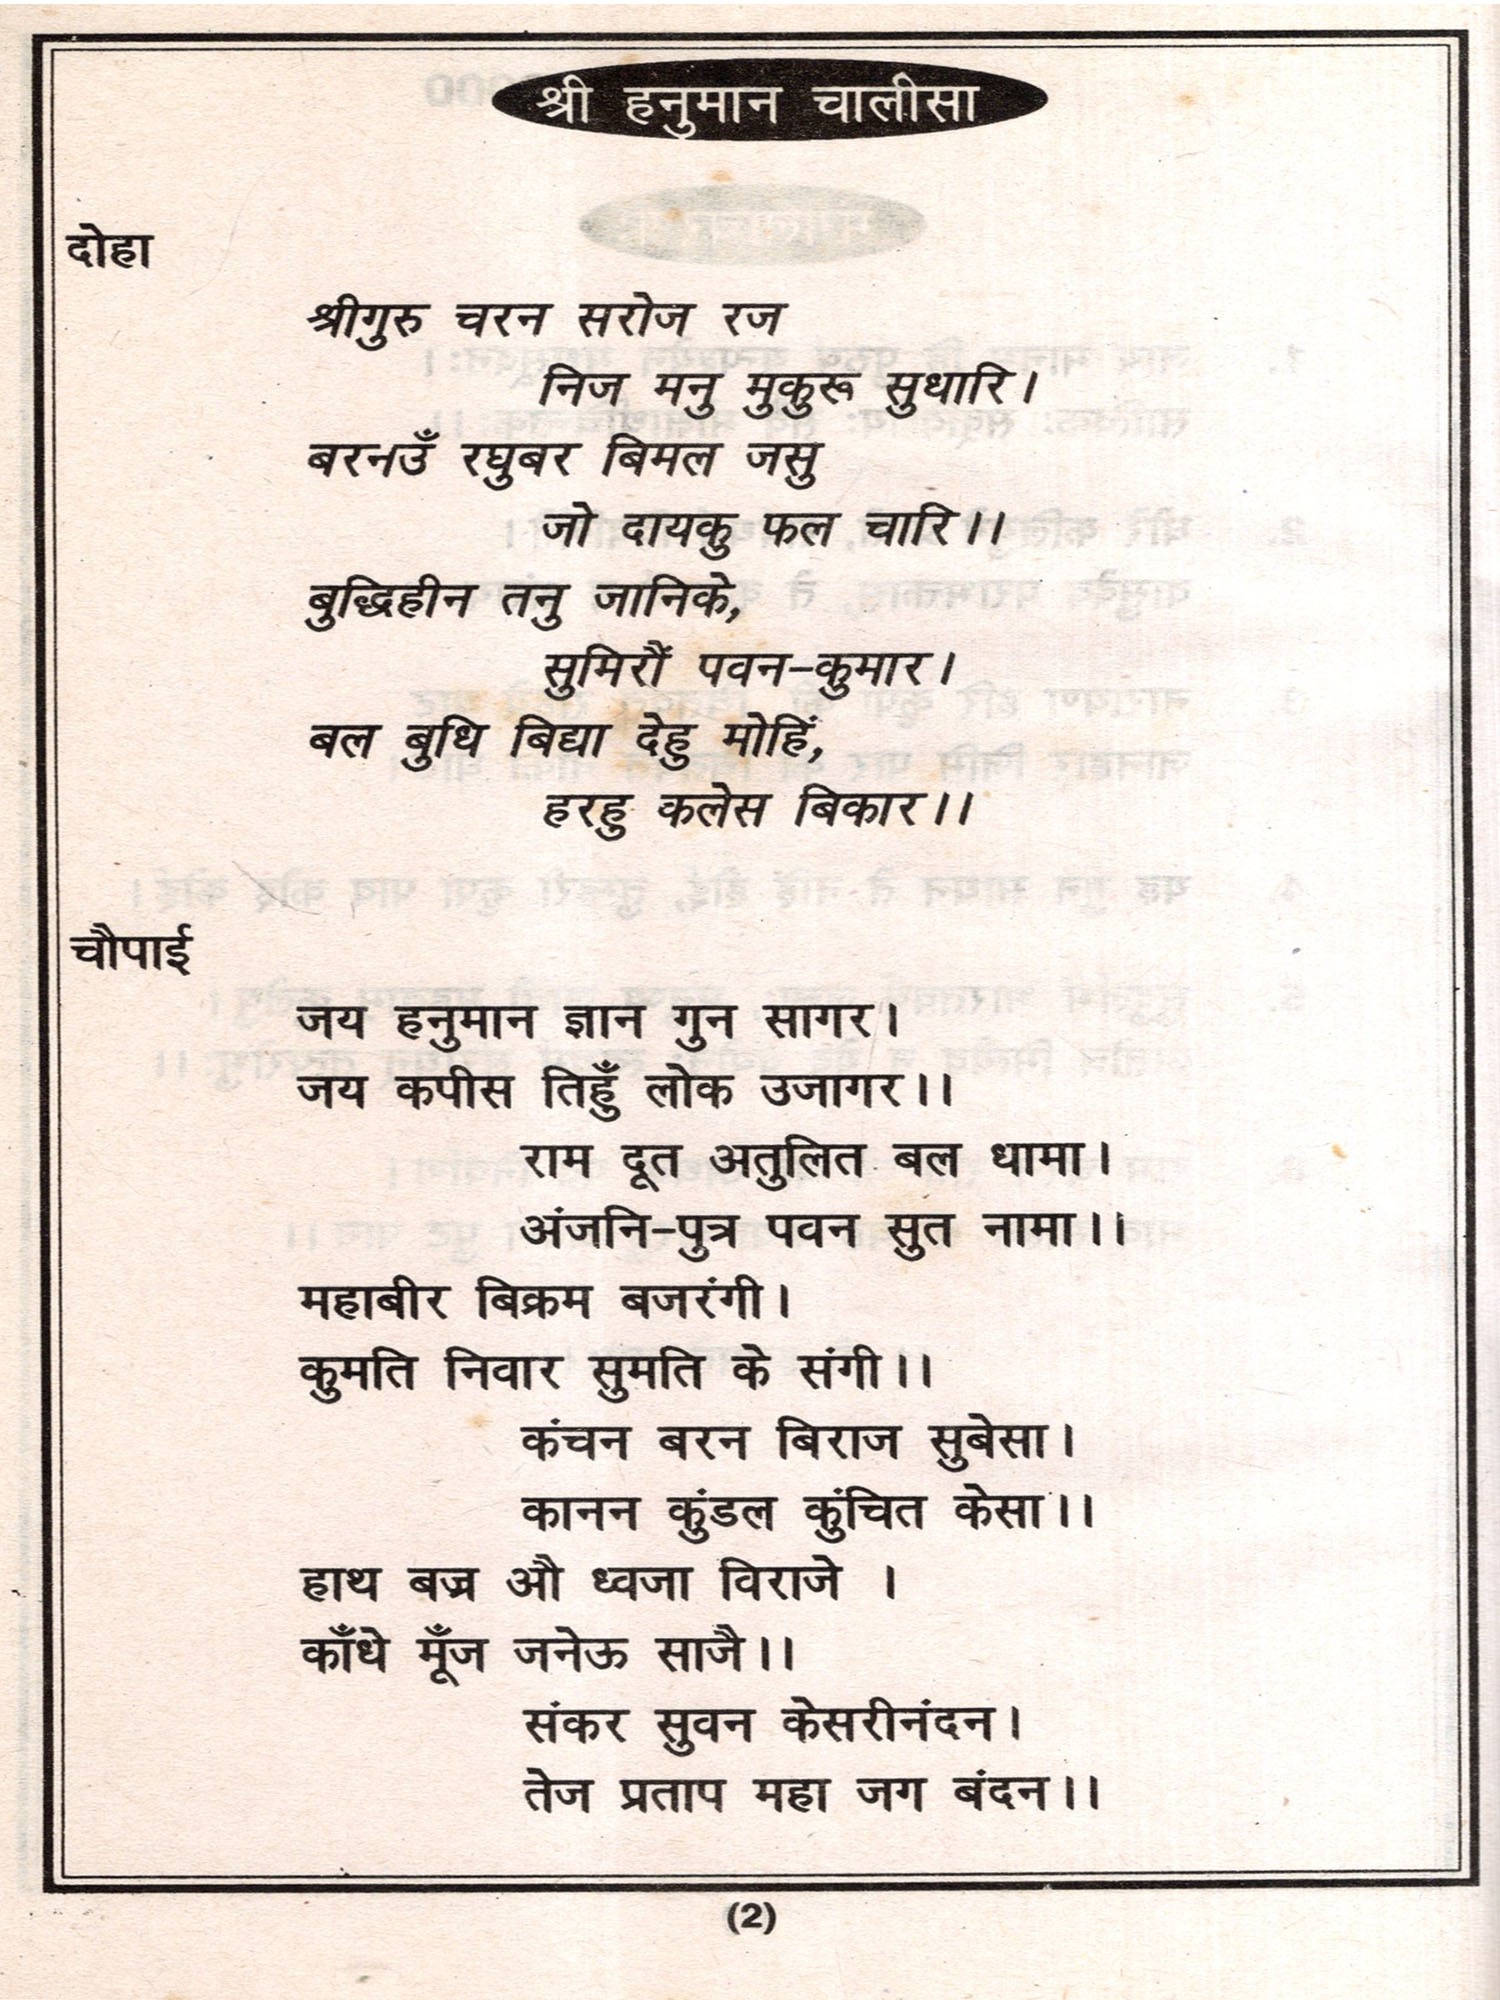 श्री हनुमान चालीसा
दोहा
श्रीगुरु चरन सरोज रज
निज मनु मुकुरू सुधारि।
बरनउँ रघुबर बिमल जसु
जो दायकु फल चारि।।
बुद्धिहीन तनु जानिके,
सुमिरौं पवन-कुमार।
बल बुधि बिद्या देहु मोहिं,
हरहु कलेस बिकार।।
चौपाई
जय हनुमान ज्ञान गुन सागर।
जय कपीस तिहुँ लोक उजागर।।
राम दूत अतुलित बल धामा।
अंजनि-पुत्र पवन सुत नामा।।
महाबीर बिक्रम बजरंगी।
कुमति निवार सुमति के संगी।।
कंचन बरन बिराज सुबेसा।
कानन कुंडल कुंचित केसा।।
हाथ बज्र औ ध्वजा विराजे ।
काँधे मूँज जनेऊ साजै।।
संकर सुवन केसरीनंदन।
तेज प्रताप महा जग बंदन।।
(2)